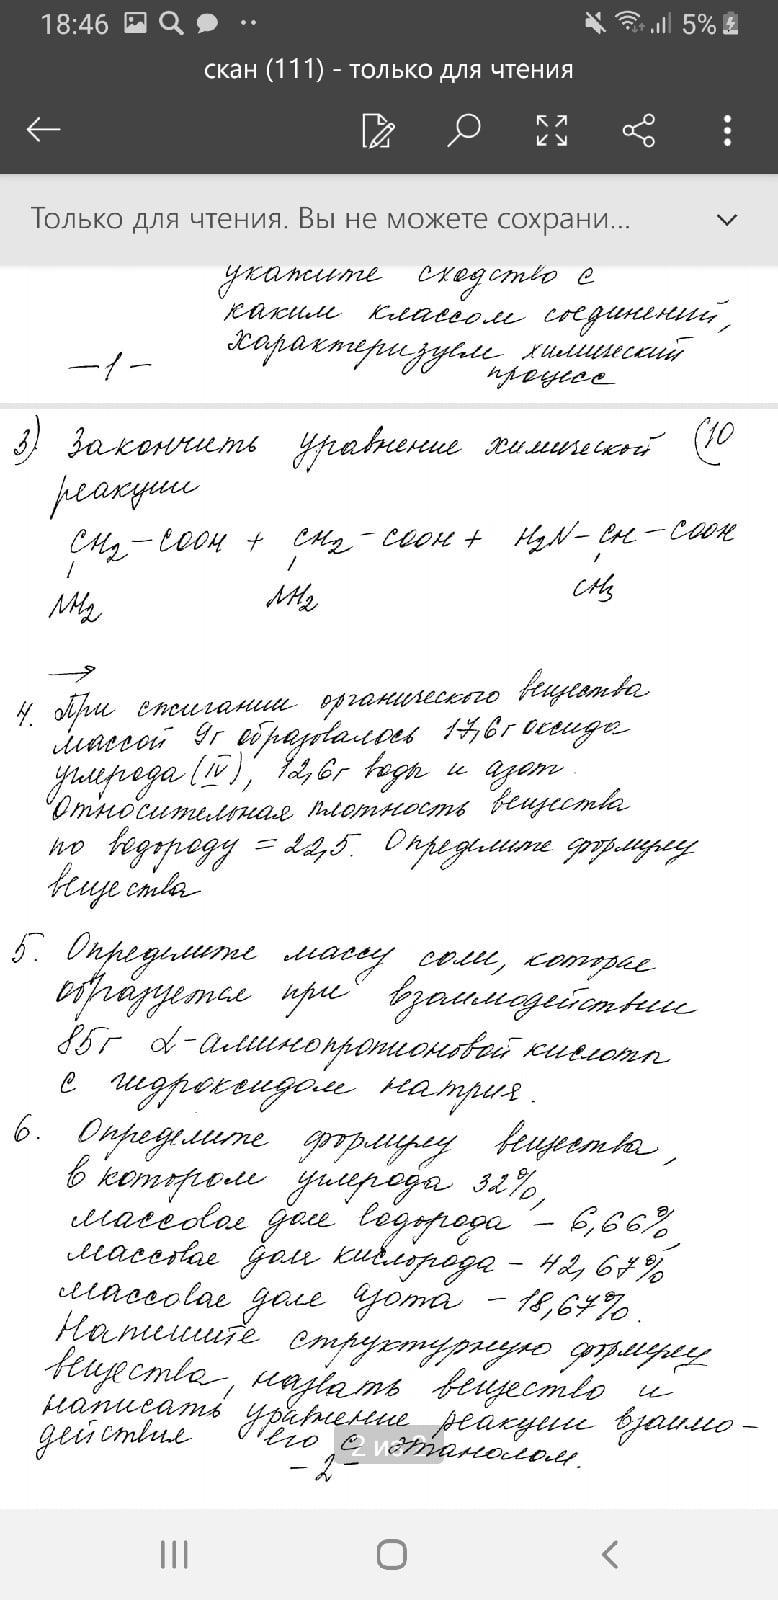 18:46
5%
скан (111) - только для чтения
Только для чтения. Вы не можете сохрани...
укажите сходство с
каким классом соединений,
характеризуем химический
процесс
-1-
3) Закончить уравнение химической (10
реакции
CH2-COOH + CH2-COOH + H2N-CH-COOH
NH2 NH2 CH3
→
4. При сжигании органического вещества
массой 9г образовалось 17,6г оксида
углерода (IV), 12,6г воды и азот.
Относительная плотность вещества
по водороду = 22,5. Определите формулу
вещества
5. Определите массу соли, которая
образуется при взаимодействии
85г α-аминопропионовой кислоты
с гидроксидом натрия.
6. Определите формулу вещества,
в котором углерода 32%,
массовая доля водорода - 6,66%,
массовая доля кислорода - 42,67%
массовая доля азота - 18,67%.
Напишите структурную формулу
вещества, назвать вещество и
написать уравнение реакции взаимо-
действия его с этанолом.
-2-
2 из 2